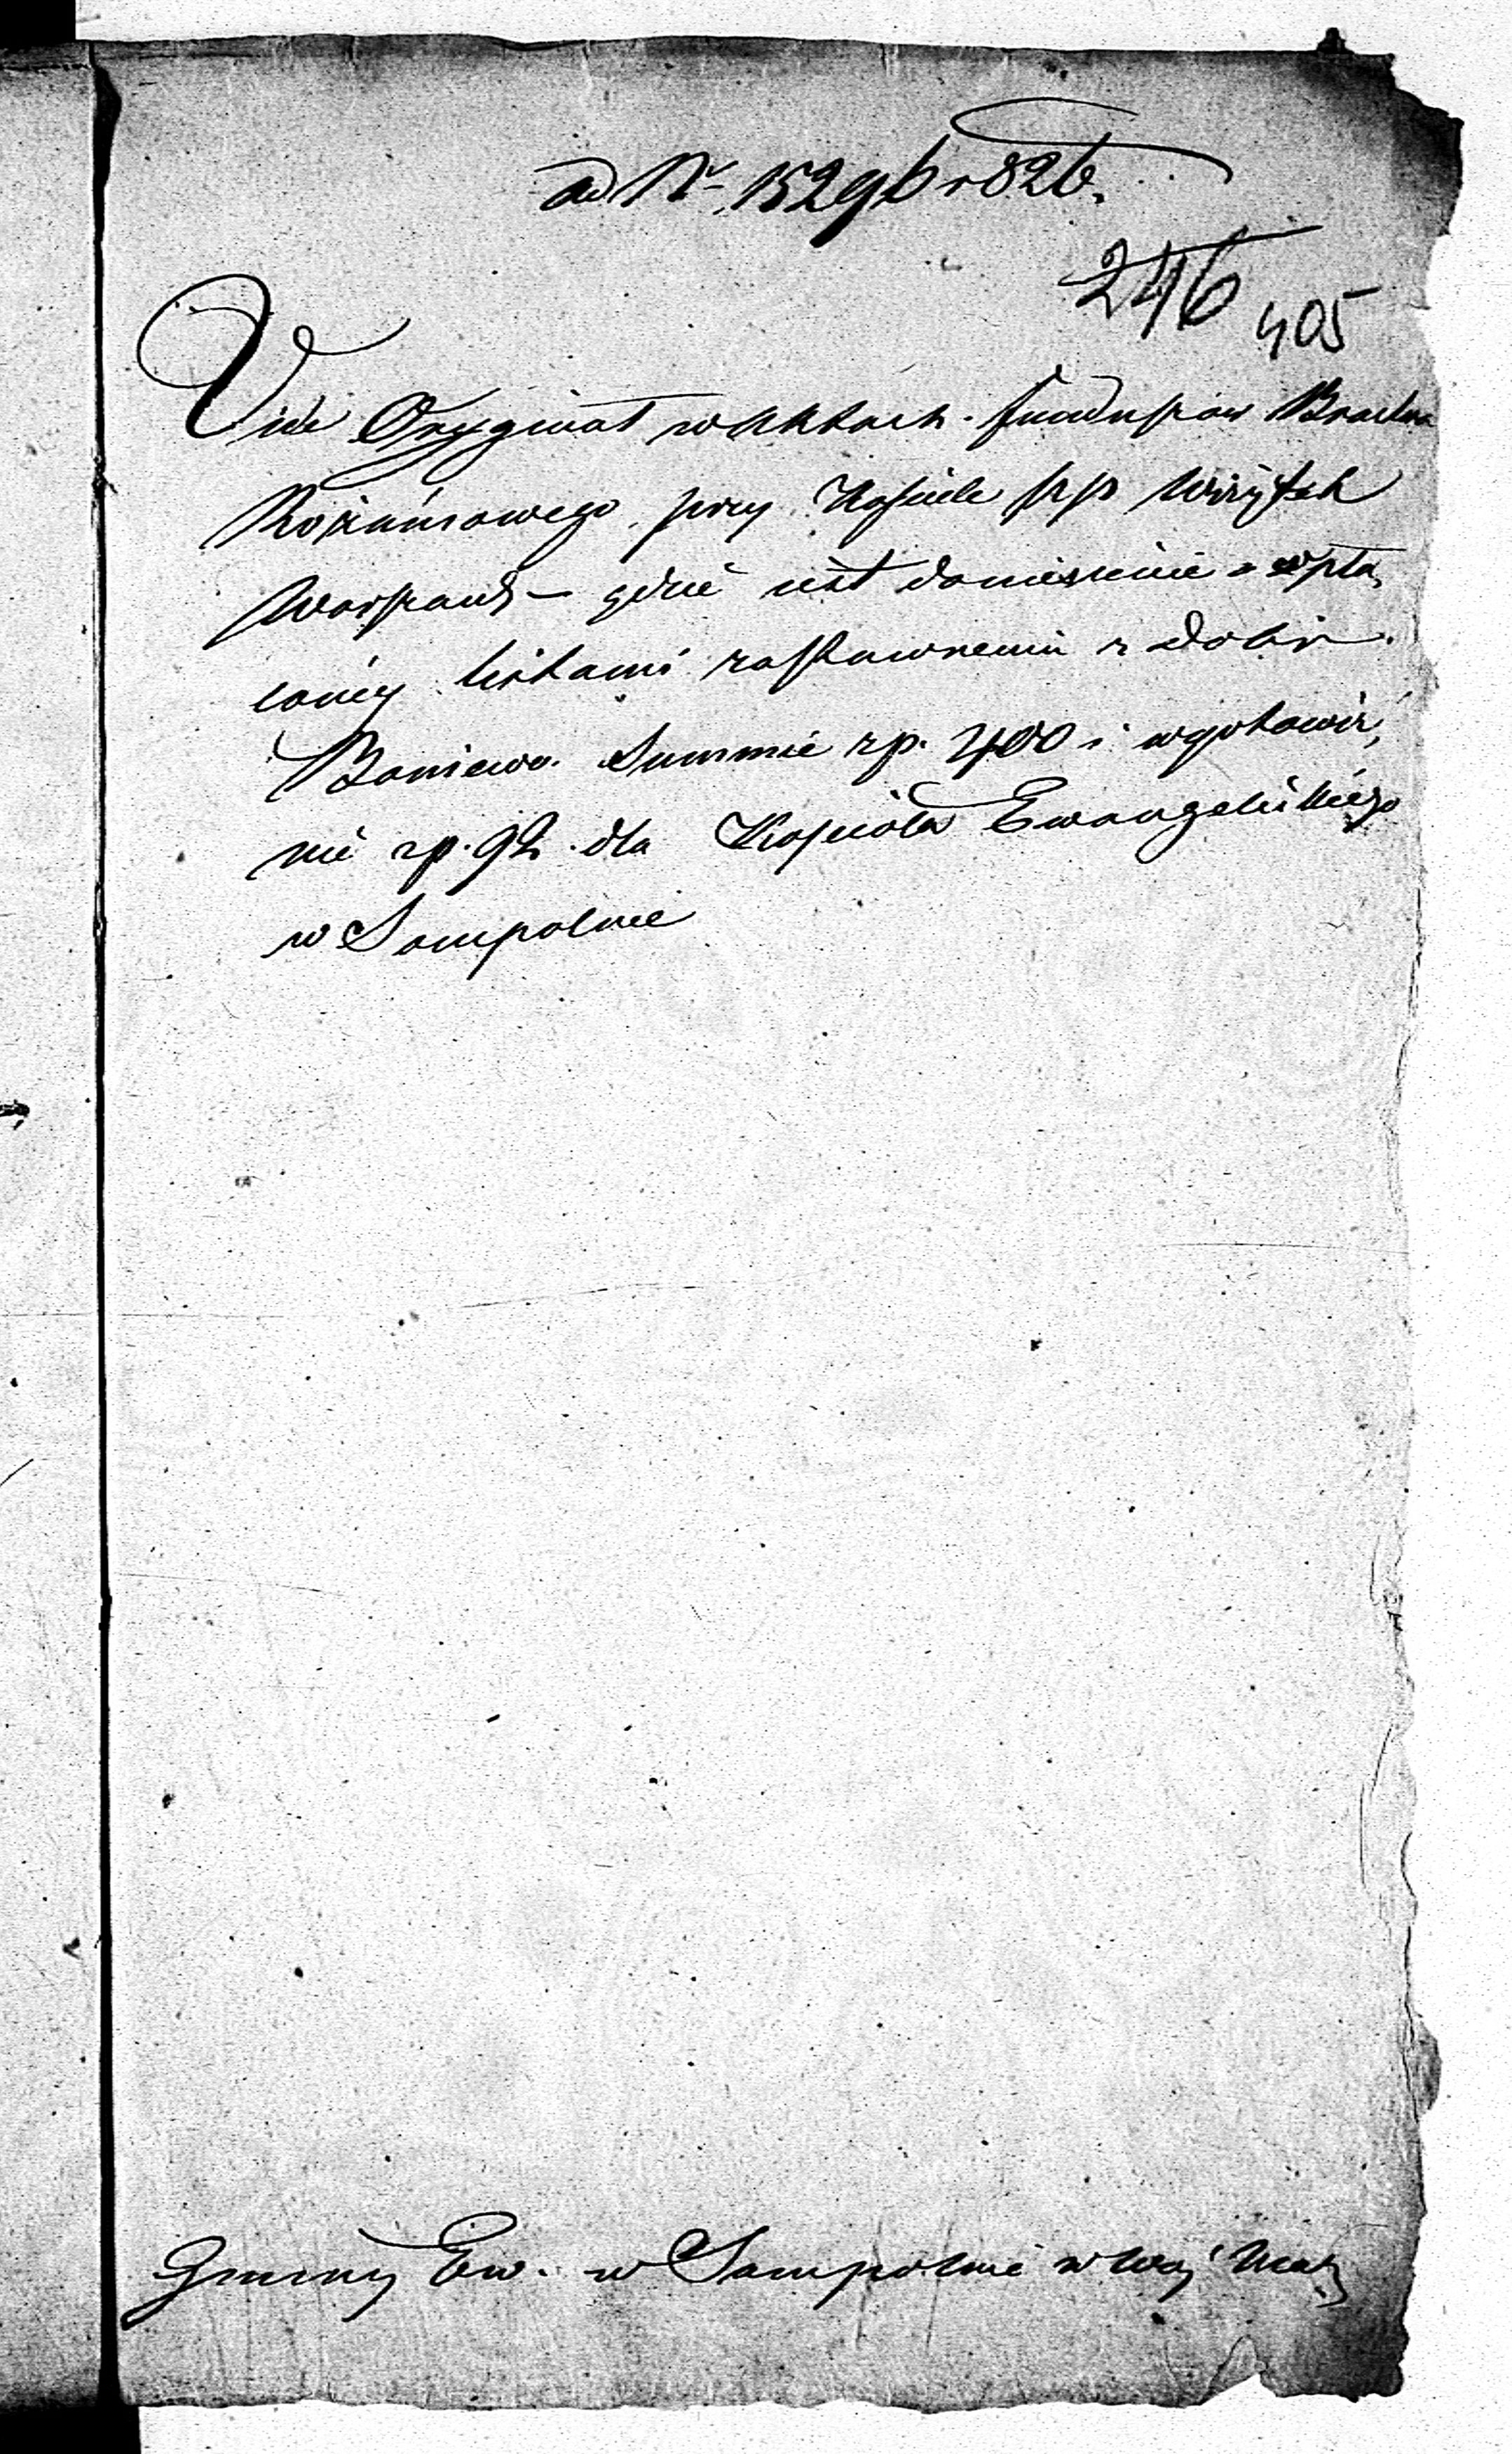 ad Nr 15296 r 826.
246 405
Vide Oryginał w Aktach funduszów Bractwa
Rożańcowego przy Kościele pp Wizytek
Warszaws– gdzie iest doniesienie o wpła,
coney listami zastawnemi z dobr
Boniewo Summie zp. 400 i wygotowie,
nie zp. 92 dla Kościoła Ewangelickiego
w Sompolnie
Gminy Ew. w Sompolnie w Woj Maz